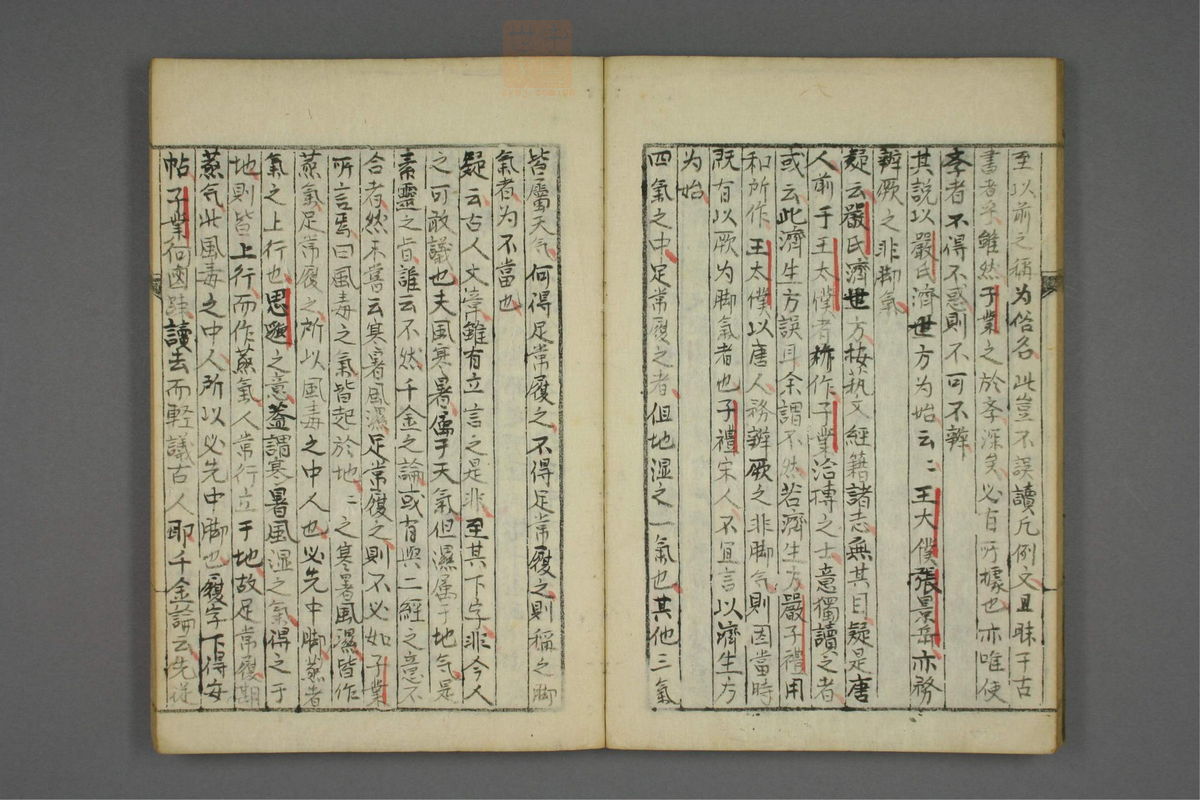 至以前之稱为俗名此豈不誤讀凡例文且昧于古
書者乎雖然子業之於李深矣必有所據也亦唯使
李者不得不惑則不可不辨
其說以嚴氏濟世方为始云々王大僕張景岳亦務
辨厥之非脚氣
疑云嚴氏濟世方按執文經籍諸志無其目疑是唐
人前于王太僕者称作子業洽摶之士意獨讀之者
或云此濟生方誤耳余謂不然若濟生方嚴子禮用
和所作王太僕以唐人務辨厥之非脚气則因當時
既有以厥为脚氣者也子禮宋人不宜言以濟生方
为始
四氣之中足常履之者但地湿之一氣也其他三氣
皆屬天气何得足常履之不得足常履之則稱之脚
氣者为不當也
疑云古人文章雖有立言之是非至其下字非今人
之可敢議也夫風寒暑屬于天氣但濕属于地气是
素靈之旨誰云不然千金之論或有與二經之意不
合者然未嘗云寒暑風濕足常履之則不必如子業
所言焉曰風毒之氣皆起於地々之寒暑風濕皆作
蒸氣足常履之所以風毒之中人也必先中脚蒸者
氣之上行也思邈之意蓋謂寒暑風湿之气得之于
地則皆上行而作蒸氣人常行立于地故足常履期
蒸气此風毒之中人所以必先中脚也履字下得安
帖子業何鹵讀去而軽議古人耶千金論云先從